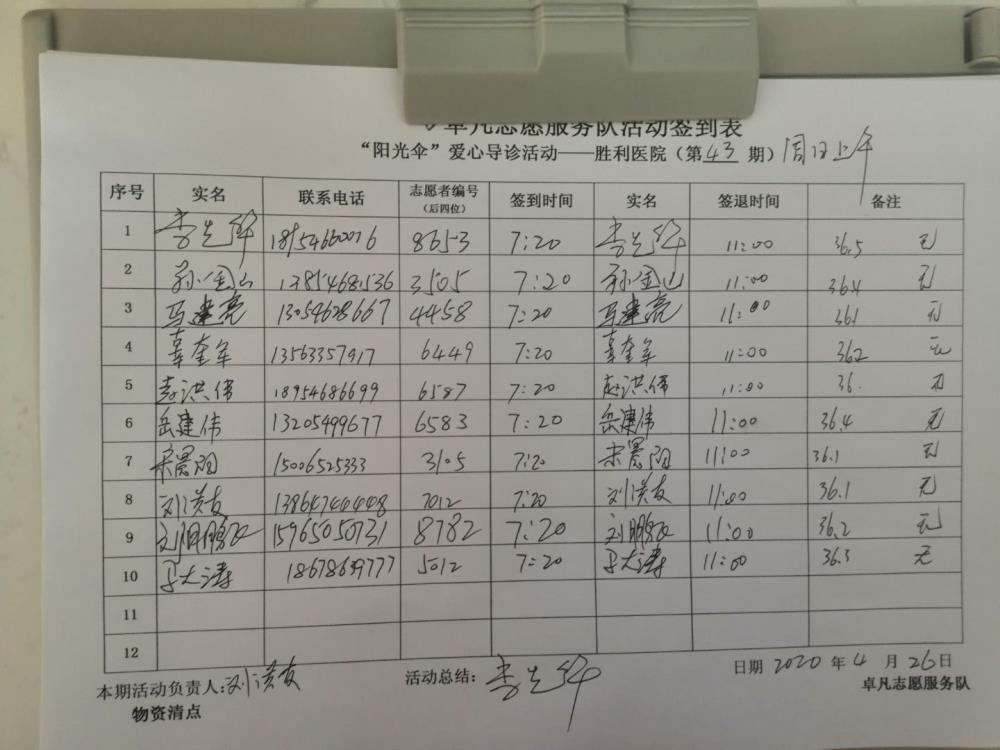 卓凡志愿服务队活动签到表
“阳光伞”爱心导诊活动——胜利医院（第43期）周日上午
序号 实名 联系电话 志愿者编号（后四位） 签到时间 实名 签退时间 备注
1 李先锋 8653 7:20 李先锋 11:00 36.5 无
2 孙金山 13854681536 3505 7:20 孙金山 11:00 36.4 无
3 马建亮 13054628667 4458 7:20 马建亮 11:00 36.1 无
4 辜奎军 13563357917 6449 7:20 辜奎军 11:00 36.2 无
5 赵洪伟 18954686699 6587 7:20 赵洪伟 11:00 36. 无
6 岳建伟 13205499677 6583 7:20 岳建伟 11:00 36.4 无
7 宋景阳 15006525333 3105 7:20 宋景阳 11:00 36.1 无
8 刘洪友 13864744448 7012 7:20 刘洪友 11:00 36.1 无
9 刘鹏 15965050731 8782 7:20 刘鹏 11:00 36.2 无
10 大涛 18678639777 5012 7:20 大涛 11:00 36.3 无
11
12
本期活动负责人:刘洪友 活动总结: 李先锋 日期 2020 年 4 月 26 日
物资清点 卓凡志愿服务队